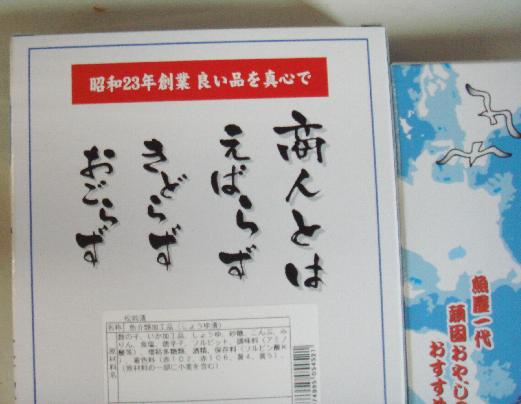 昭和23年創業 良い品を真心で
商人とは
えばらず
きどらず
おごらず
松前漬
名称 魚介類加工品（しょうゆ漬）
原材料名
数の子、いか加工品、しょうゆ、砂糖、こんぶ、み
りん、食塩、唐辛子、ソルビット、調味料（アミノ
酸等）、増粘多糖類、酒精、保存料（ソルビン酸K
）、着色料（赤102、赤106、黄4、黄5）、
（原材料の一部に小麦を含む）
魚屋一代
頑固おやじ
おすすめ